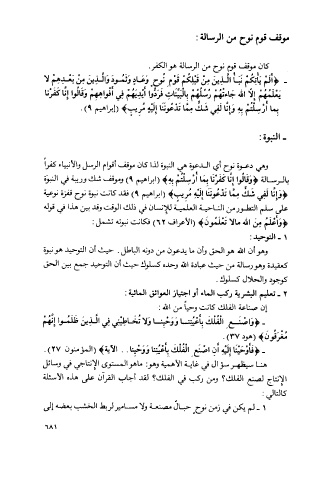 موقف قوم نوح من الرسالة :
كان موقف قوم نوح من الرسالة هو الكفر.
ـ ﴿أَلَمْ يَأْتِكُمْ نَبَأُ الَّذِينَ مِنْ قَبْلِكُمْ قَوْمِ نُوحٍ وَعَادٍ وَثَمُودَ وَالَّذِينَ مِنْ بَعْدِهِمْ لا
يَعْلَمُهُمْ إِلَّا اللهُ جَاءَتْهُمْ رُسُلُهُمْ بِالْبَيِّنَاتِ فَرَدُّوا أَيْدِيَهُمْ فِي أَفْوَاهِهِمْ وَقَالُوا إِنَّا كَفَرْنَا
بِمَا أُرْسِلْتُمْ بِهِ وَإِنَّا لَفِي شَكٍّ مِمَّا تَدْعُونَنَا إِلَيْهِ مُرِيبٍ﴾ (ابراهيم ٩).
ـ النبوة :
وهي دعوة نوح أي الدعوة هي النبوة لذا كان موقف أقوام الرسل والأنبياء كفراً
بالرسالة ﴿وَقَالُوا إِنَّا كَفَرْنَا بِمَا أُرْسِلْتُمْ بِهِ﴾ (ابراهيم ٩) وموقف شك وريبة في النبوة
﴿وَإِنَّا لَفِي شَكٍّ مِمَّا تَدْعُونَنَا إِلَيْهِ مُرِيبٍ﴾ (ابراهيم ٩) فقد كانت نبوة نوح قفزة نوعية
على سلم التطور من الناحية العلمية للإنسان في ذلك الوقت وقد بين هذا في قوله
﴿وَأَعْلَمُ مِنَ اللهِ مَالا تَعْلَمُونَ﴾ (الأعراف ٦٢) فكانت نبوته تشمل :
١ ـ التوحيد :
وهو أن الله هو الحق وأن ما يدعون من دونه الباطل. حيث أن التوحيد هو نبوة
كعقيدة وهو رسالة من حيث عبادة الله وحده كسلوك حيث أن التوحيد جمع بين الحق
كوجود والحلال كسلوك.
٢ ـ تعليم البشرية ركب الماء أو اجتياز العوائق المائية :
إن صناعة الفلك كانت وحياً من الله :
ـ ﴿وَاصْنَعِ الْفُلْكَ بِأَعْيُنِنَا وَوَحْيِنَا وَلا تُخَاطِبْنِي فِي الَّذِينَ ظَلَمُوا إِنَّهُمْ
مُغْرَقُونَ﴾ (هود ٣٧).
ـ ﴿فَأَوْحَيْنَا إِلَيْهِ أَنِ اصْنَعِ الْفُلْكَ بِأَعْيُنِنَا وَوَحْيِنَا . . الآية﴾ (المؤمنون ٢٧).
هنا سيظهر سؤال في غاية الأهمية وهو: ماهو المستوى الإنتاجي في وسائل
الإنتاج لصنع الفلك؟ ومن ركب في الفلك؟ لقد أجاب القرآن على هذه الأسئلة
كالتالي :
١ ـ لم يكن في زمن نوح حبال مصنعة ولا مسامير لربط الخشب بعضه إلى
٦٨١